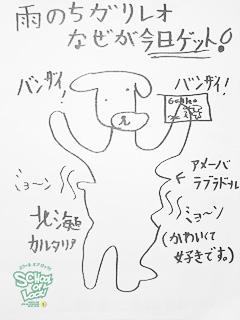 雨のちガリレオ
なぜか今日ゲット!
バンザイ!
バンザイ!
ミョ〜ン
北海道
カルタリア
アメーバ
ラブラドール
ミョ〜ン
(かわいくて
好きです。)
SCHOOL
OF
LOCK!